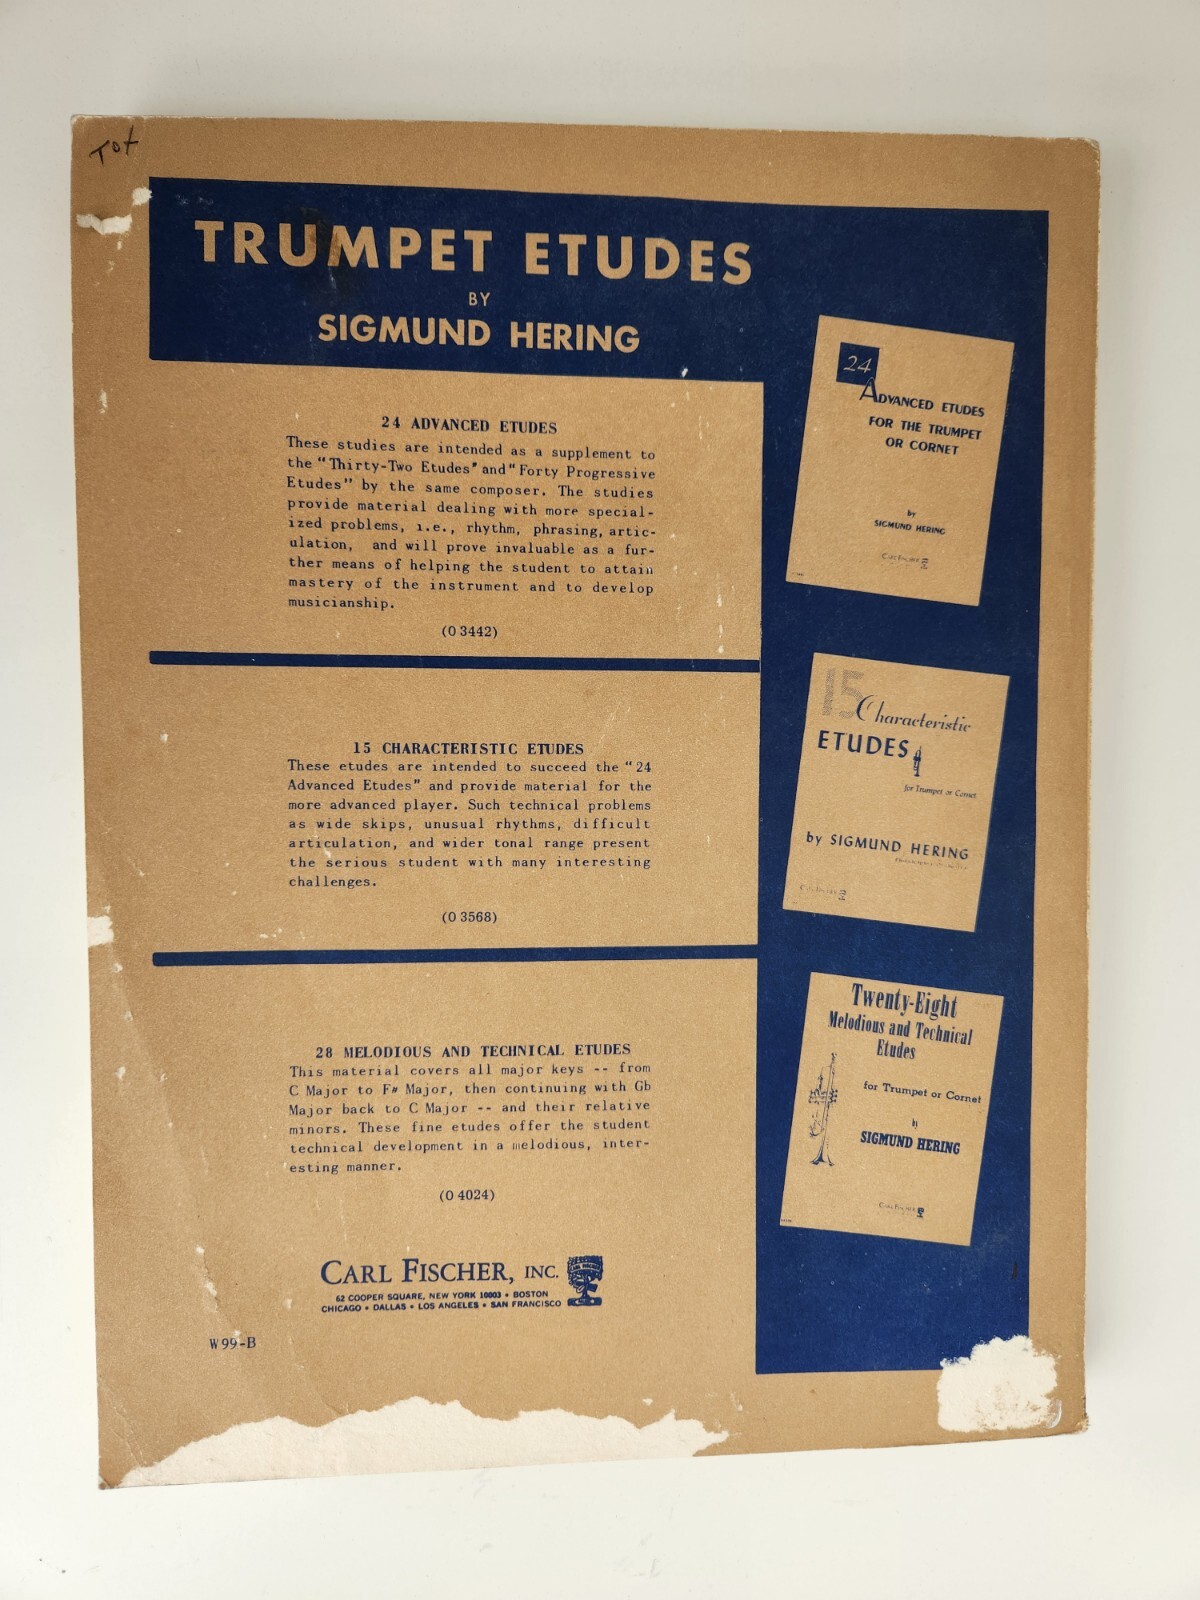 Tot
TRUMPET ETUDES
BY
SIGMUND HERING
24 ADVANCED ETUDES
These studies are intended as a supplement to
the "Thirty-Two Etudes" and "Forty Progressive
Etudes" by the same composer. The studies
provide material dealing with more special-
ized problems, i.e., rhythm, phrasing, artic-
ulation, and will prove invaluable as a fur-
ther means of helping the student to attain
mastery of the instrument and to develop
musicianship.
(O 3442)
15 CHARACTERISTIC ETUDES
These etudes are intended to succeed the "24
Advanced Etudes" and provide material for the
more advanced player. Such technical problems
as wide skips, unusual rhythms, difficult
articulation, and wider tonal range present
the serious student with many interesting
challenges.
(O 3568)
28 MELODIOUS AND TECHNICAL ETUDES
This material covers all major keys -- from
C Major to F# Major, then continuing with Gb
Major back to C Major -- and their relative
minors. These fine etudes offer the student
technical development in a melodious, inter-
esting manner.
(O 4024)
CARL FISCHER, INC.
62 COOPER SQUARE, NEW YORK 10003 • BOSTON
CHICAGO • DALLAS • LOS ANGELES • SAN FRANCISCO
W 99-B
24
ADVANCED ETUDES
FOR THE TRUMPET
OR CORNET
by
SIGMUND HERING
Carl Fischer
15
Characteristic
ETUDES
for Trumpet or Cornet
by SIGMUND HERING
Carl Fischer
Twenty-Eight
Melodious and Technical
Etudes
for Trumpet or Cornet
by
SIGMUND HERING
Carl Fischer